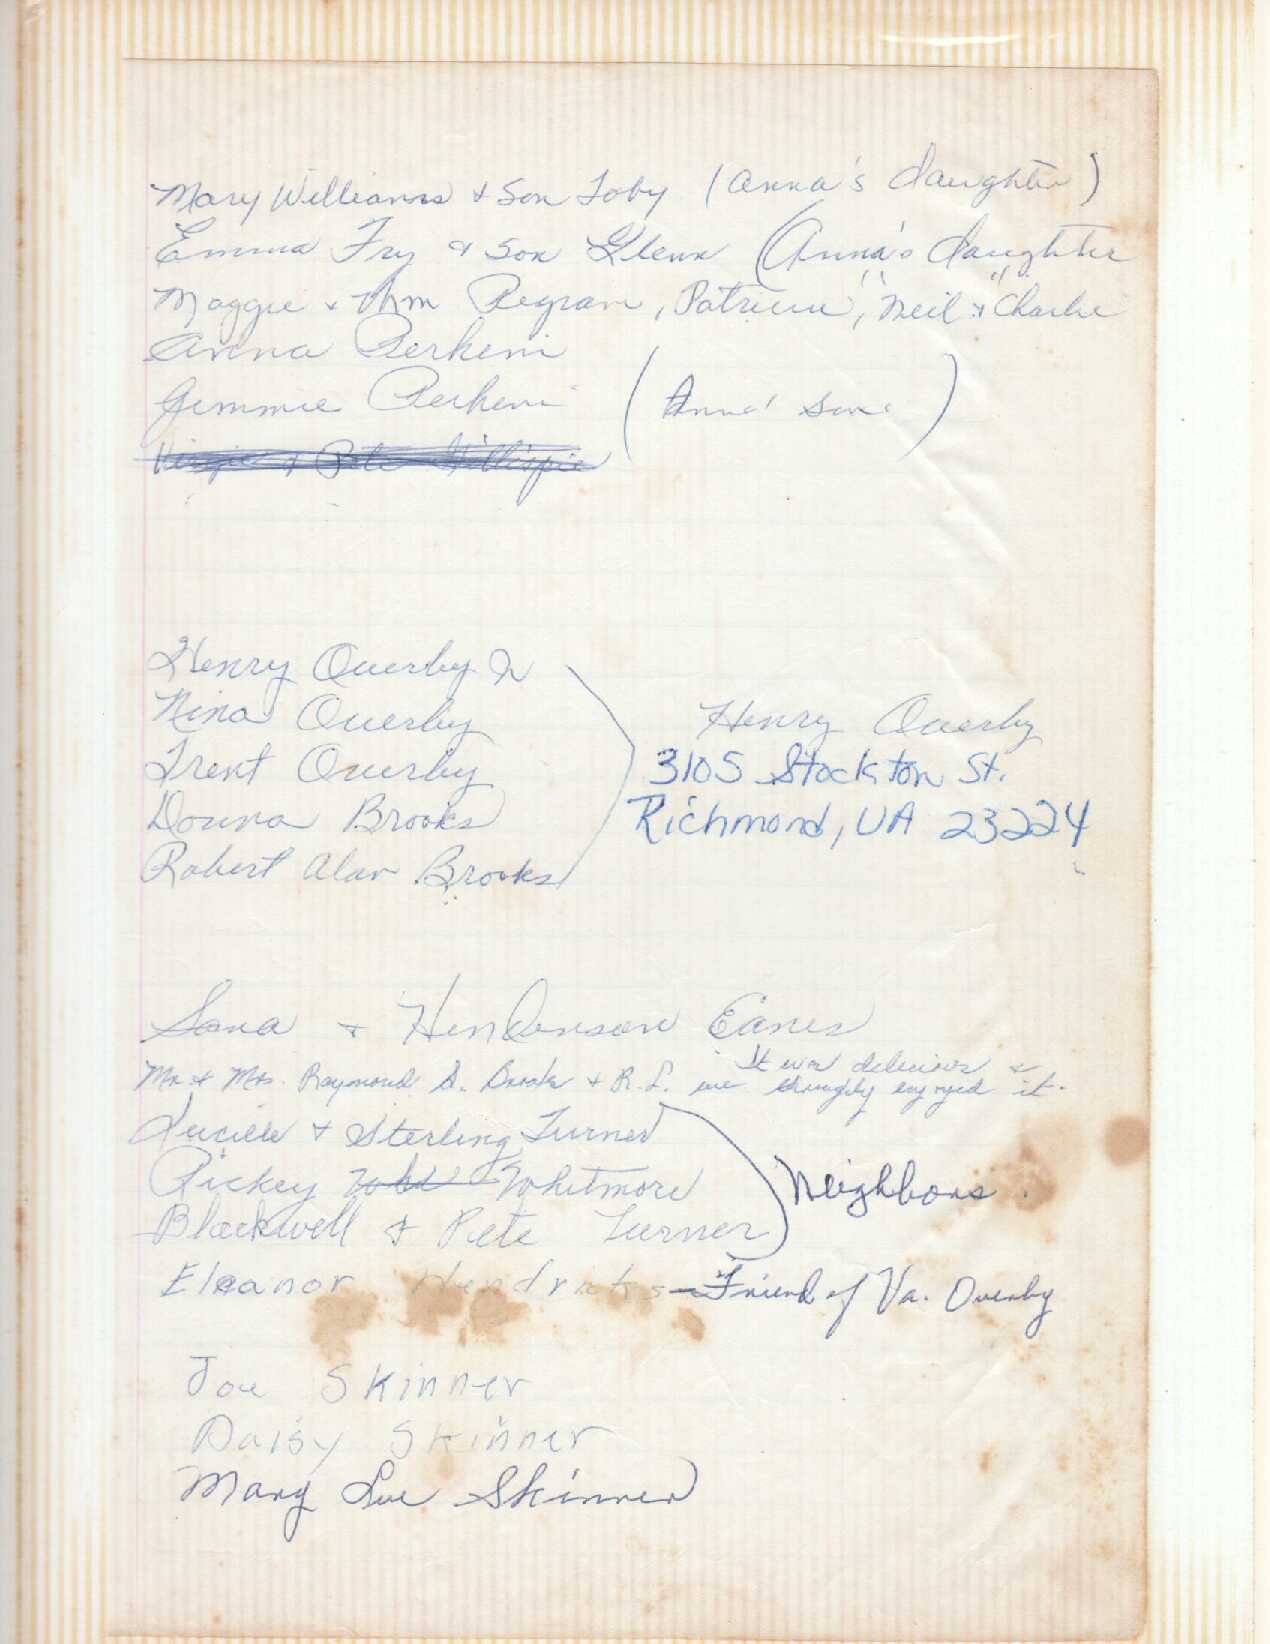 Mary Williams & Son Toby (Anna's daughter)
Emma Fry & Son Glenn (Anna's daughter
Maggie & Wm Pegram, Patricia, Neil & "Charlie"
Anna Perkins
Jimmie Perkins (Anna' Son)
Virgie & Pete Gillispie
Henry Overby Jr
Nina Overby
Trent Overby
Donna Brooks
Robert Alan Brooks
Henry Overby
3105 Stockton St.
Richmond, VA 23224
& Henderson Eanes
Mr & Mrs. Raymond S. Brooks & R.L. It was delicious & we enjoyed it.
Lucille & Sterling Turner
Rickey Whitmore
Blackwell & Pete Turner
Neighbors.
Eleanor Hendricks - Friend of Va. Overby
Joe Skinner
Daisy Skinner
Mary Lue Skinner